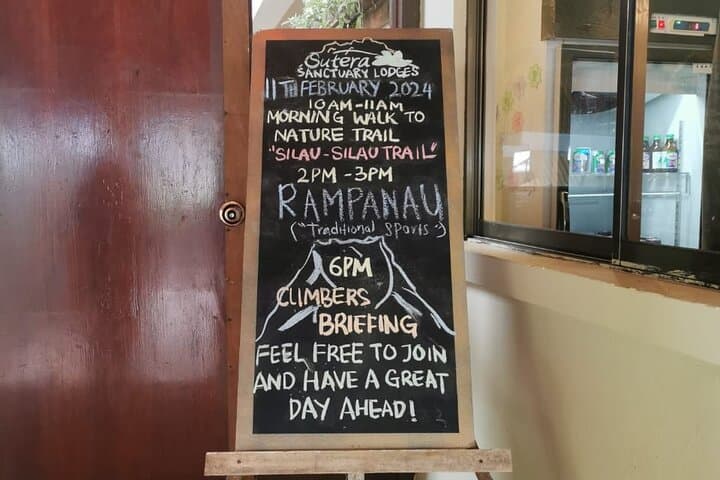 Sutera
SANCTUARY LODGES
11TH FEBRUARY 2024
10AM-11AM
MORNING WALK TO
NATURE TRAIL
"SILAU-SILAU TRAIL"
2PM-3PM
RAMPANAU
("Traditional Sports")
6PM
CLIMBERS
BRIEFING
FEEL FREE TO JOIN
AND HAVE A GREAT
DAY AHEAD!